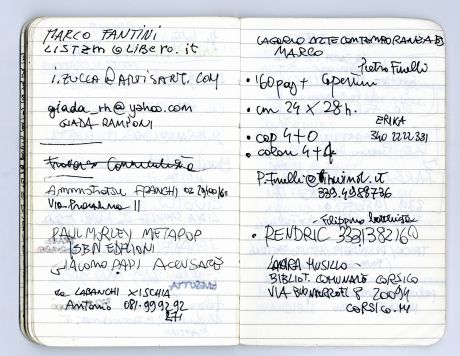 MARCO FANTINI
LISTZM@LIBERO.it
i.ZUCCA@ARTISART.COM
giada_rh@yahoo.com
GIADA RAMPONI
Via 11
PAUL MORLEY METAPOP
ISBN EDIZIONI
GIACOMO PAPI ACCUSARE
LABANCHI X ISCHIA
Antonio 081.999292
ARTE CONTEMPORANEA
MARCO
Pietro
160 pag + Copertina
cm 24 X 28 h.
ERIKA
340 2222331
cop 4+0
colori 4+4
339.4988736
Filippino
RENDRIC 3331382160
LAURA MUSILLO -
BIBLIOT. COMUNALE CORSICO
VIA BUONARROTI 8 20094
CORSICO. MI